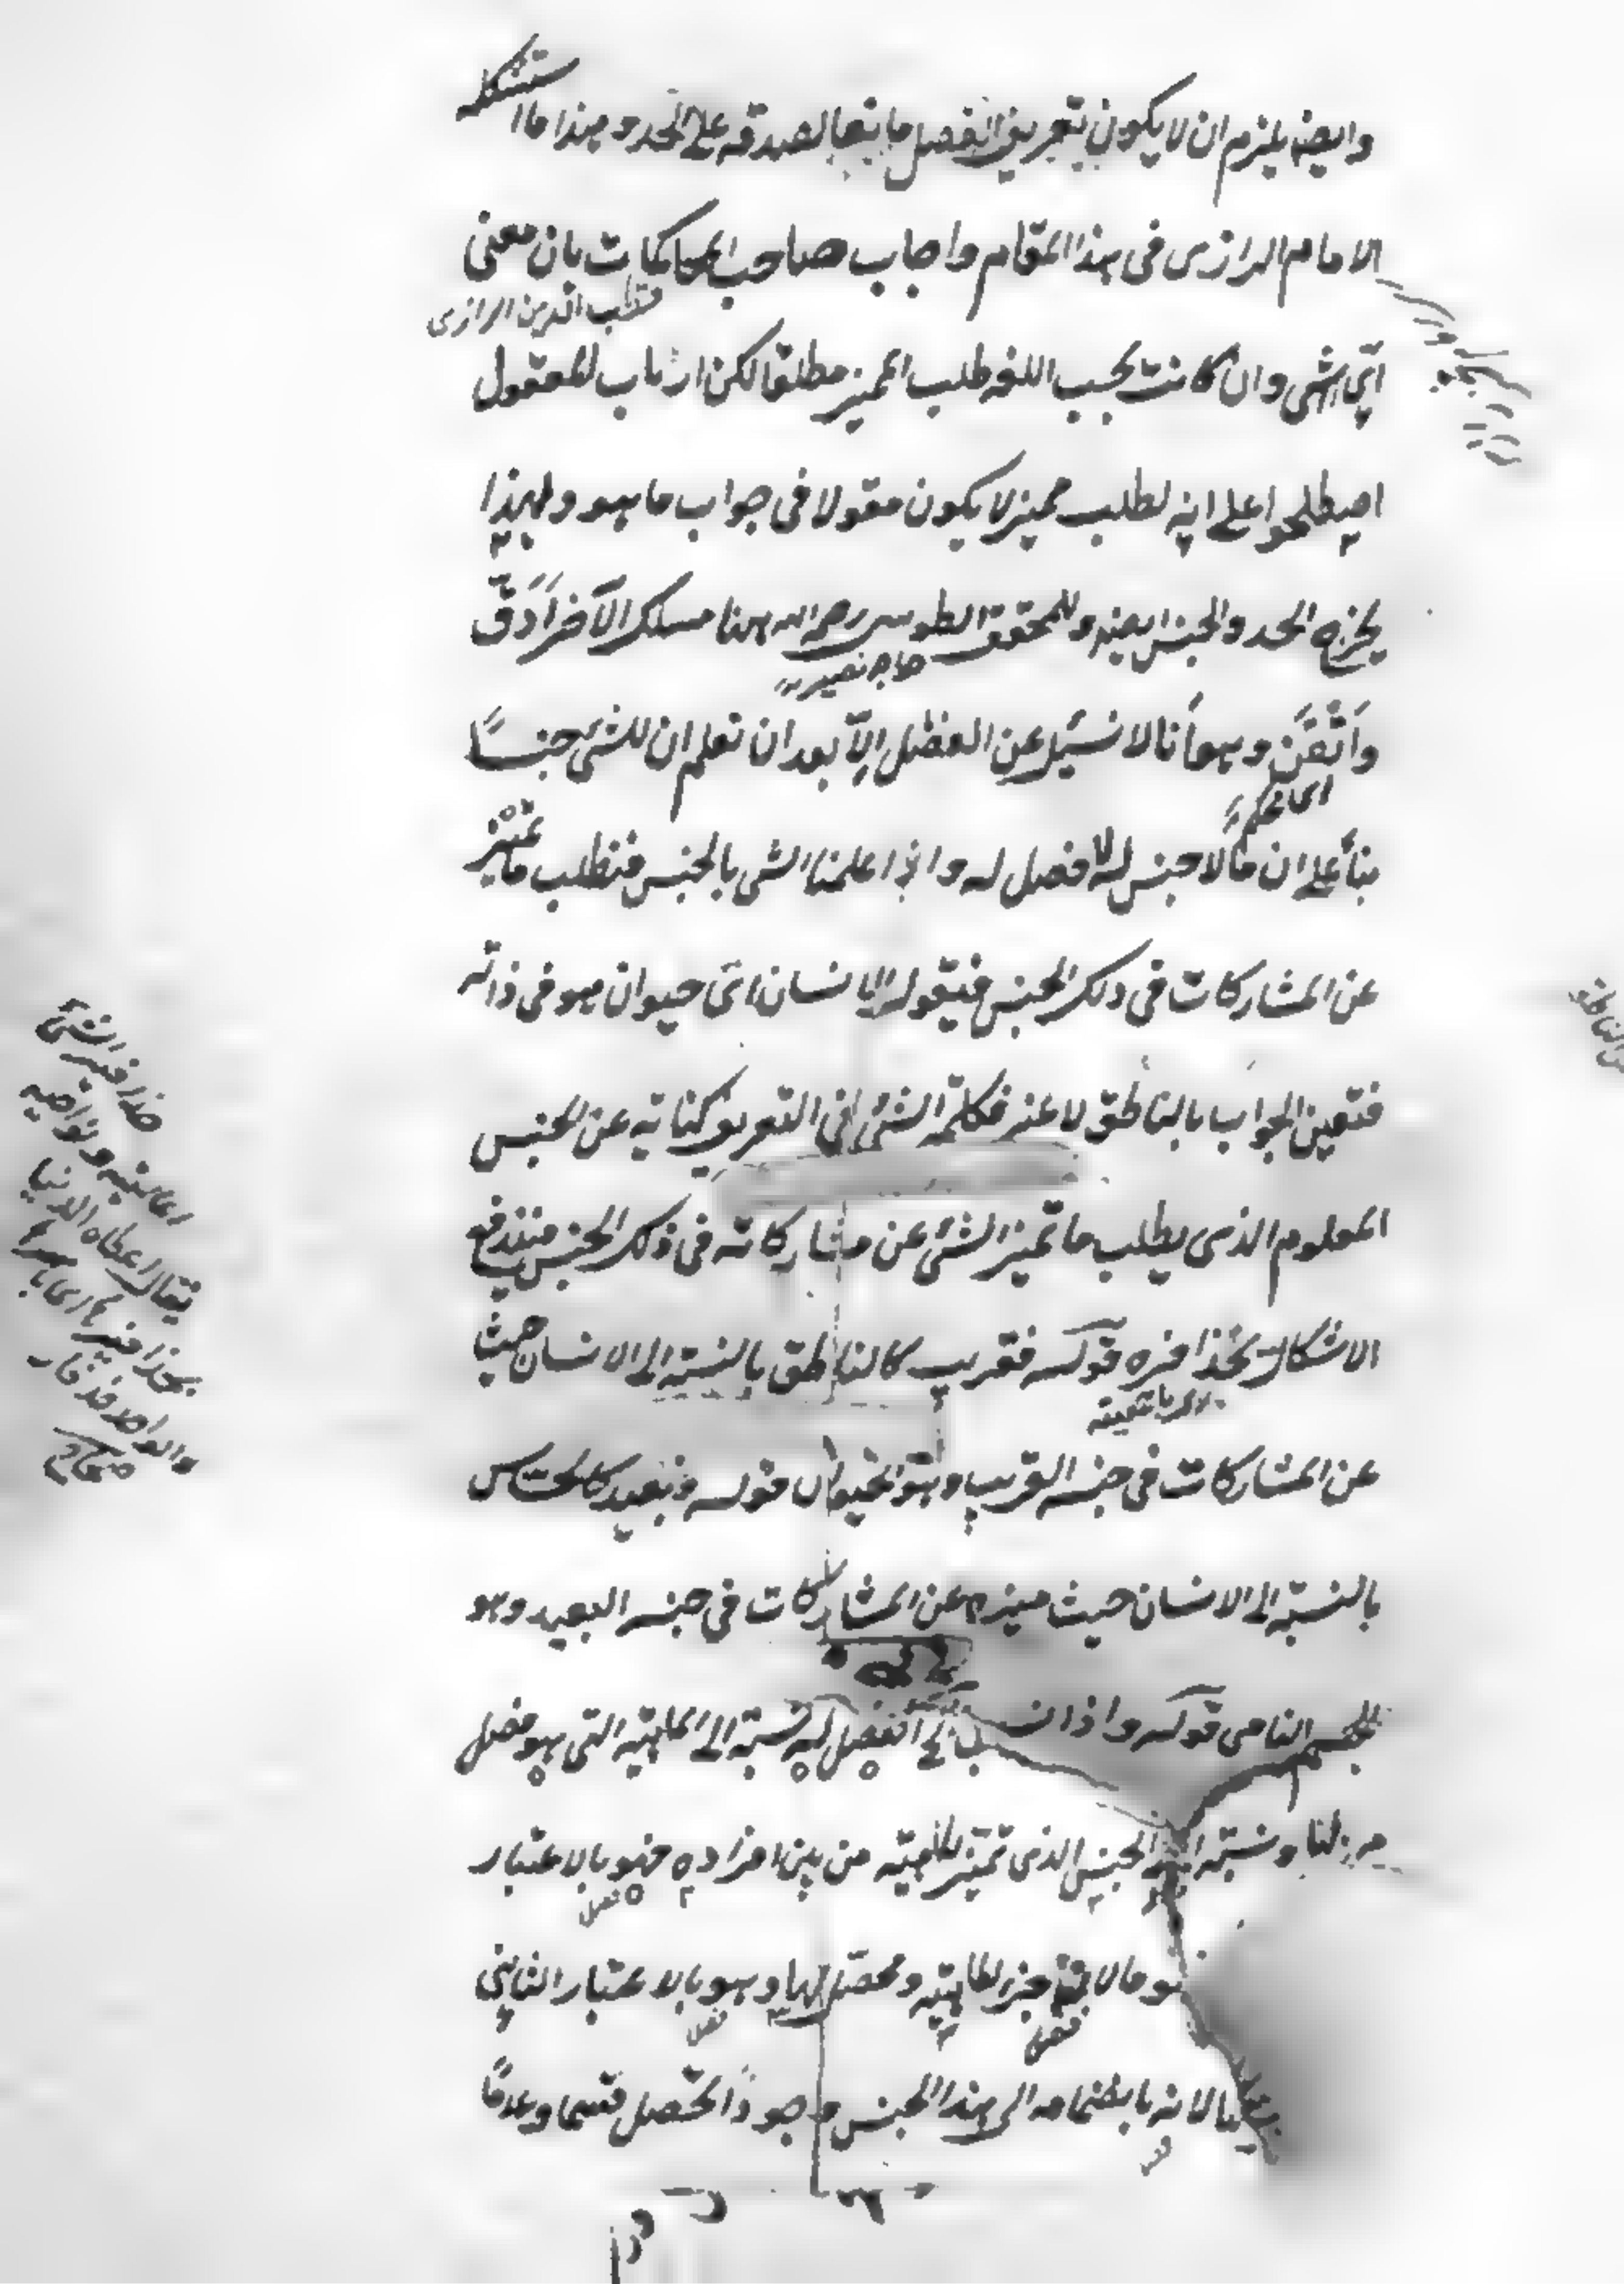 وايضا يلزم ان لا يكون تعريف الفصل مانعا لصدقه على الحد وهذا ما استشكله
الامام الرازى فى هذا المقام واجاب صاحب المحاكمات بان معنى
قطب الدين الرازى
اىّ شى وان كانت بحسب اللغه طلب المميز مطلقا لكن ارباب المعقول
اصطلحوا على انه لطلب مميز لا يكون مقولا فى جواب ما هو ولهذا
يخرج الحد والجنس ايضا وللمحقق الطوسى رحمه الله ههنا مسلك الآخر اَدَقّ
خاجه نصير
واَتْقَن وهو اَنا لا نسئل عن الفصل الاّ بعد ان نعلم ان للشى جنسًا
بناءً على ان مالا جنس له لا فصل له واذا علمنا الشى بالجنس فنطلب ما يميّز
عن المشاركات فى ذلك الجنس فيقول الانسان اىّ حيوان هو فى ذاته
فتعين الجواب بالناطق لا غير فكلمة الشئ فى التعريف كناية عن الجنس
المعلوم الذى يطلب ما تميز الشئ عن مشاركاته فى ذلك الجنس فيندفع
الاشكال بحذافيره قوله فقريب كالناطق بالنسبة الى الانسان حيث
عن المشاركات فى جنسه القريب وهو الحيوان قوله فبعيد كالحساس
بالنسبة الى الانسان حيث ميزه عن المشاركات فى جنسه البعيد وهو
الجسم النامى قوله واذا نسب الى الفصل له نسبة الى الماهية التى هو فصل
لها ونسبة الى الجنس الذى تميّز الماهية من بين افراده فهو بالاعتبار
جزء للماهية ومحصّل لها وهو بالاعتبار الثانى
لانه بانضمامه الى هذا الجنس وجودًا تحصل قسما وعدمًا
حذافير الشئ
اعاليه ونواحيه
يقال اعطاه الدنيا
بحذافيرها اى باسرها
والواحد حذفار
صحاح